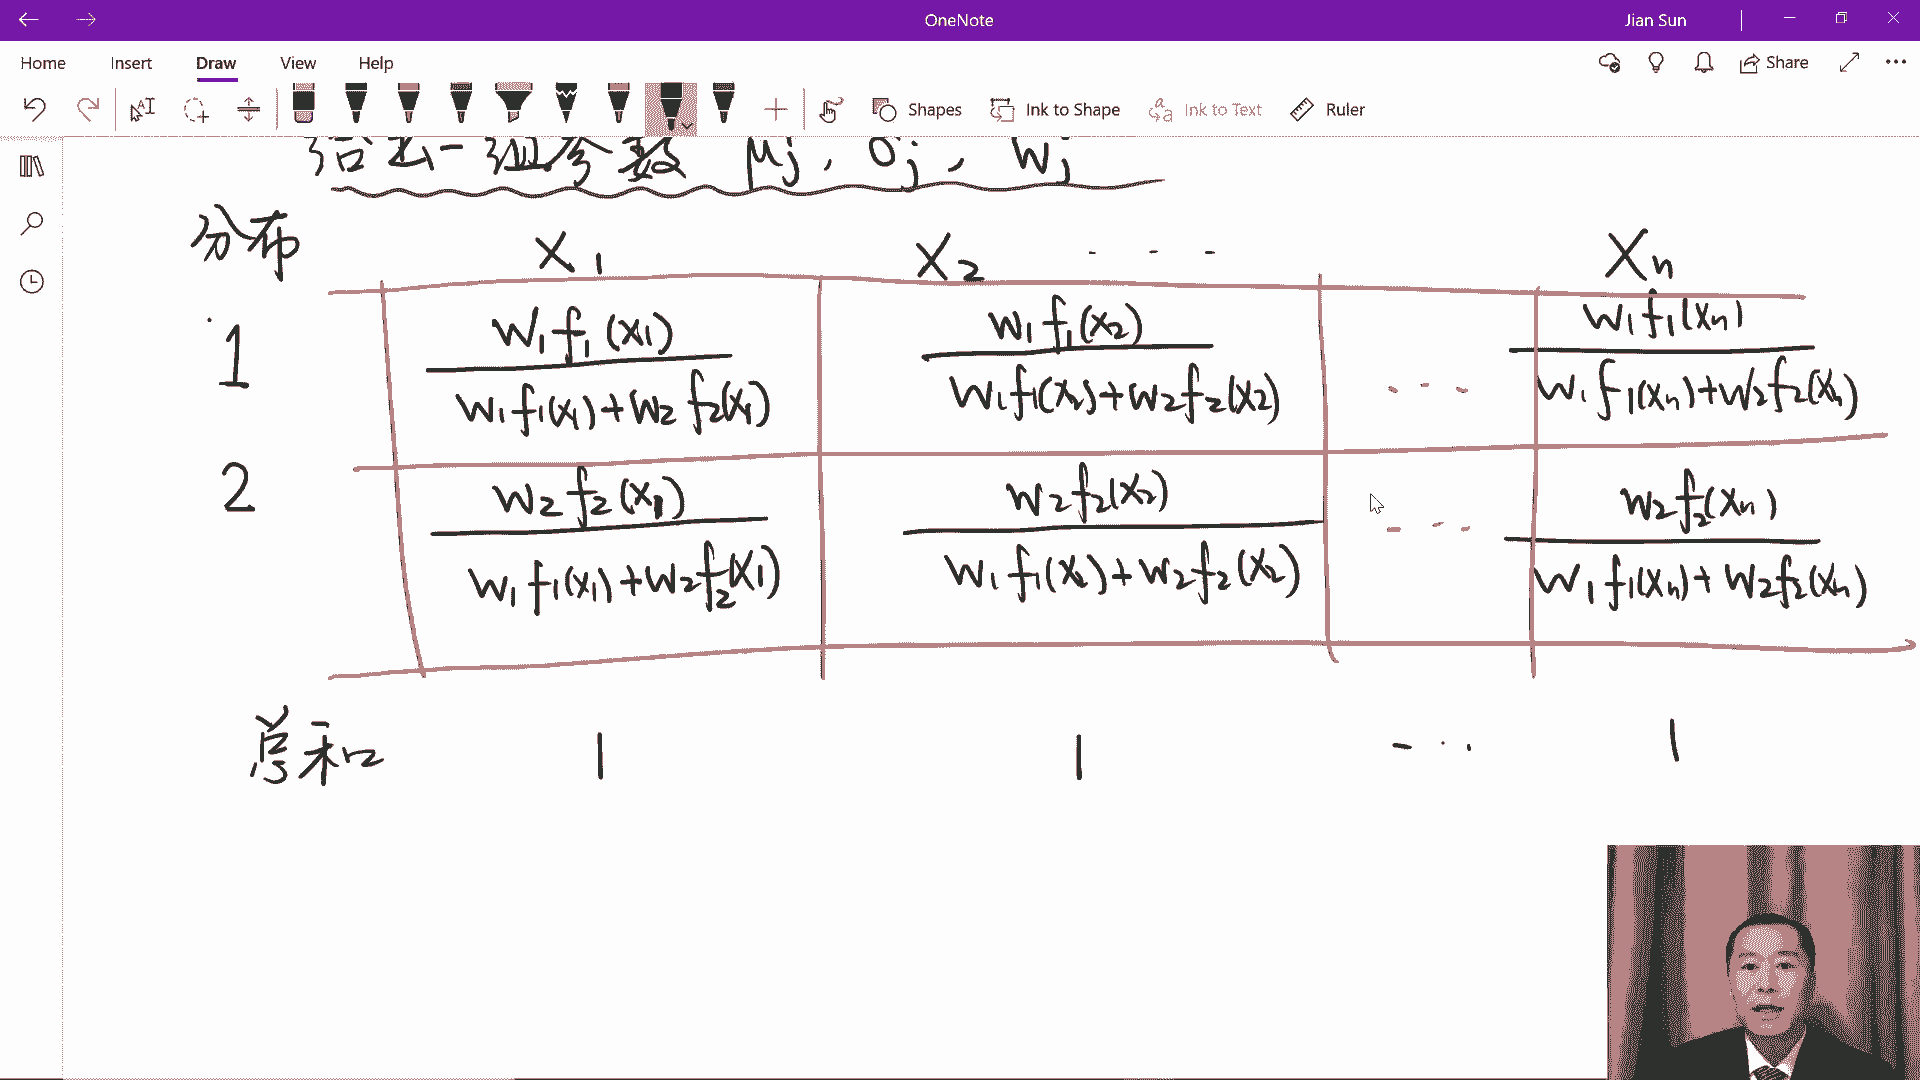 OneNote
Jian Sun
Home Insert Draw View Help
Share
Shapes Ink to Shape Ink to Text Ruler
给出一组参数 μj , σj , Wj
分布 X1 X2 - - - Xn
1 W1f1(X1) / W1f1(X1)+W2f2(X1) W1f1(X2) / W1f1(X2)+W2f2(X2) - - - W1f1(Xn) / W1f1(Xn)+W2f2(Xn)
2 W2f2(X1) / W1f1(X1)+W2f2(X1) W2f2(X2) / W1f1(X2)+W2f2(X2) - - - W2f2(Xn) / W1f1(Xn)+W2f2(Xn)
总和 1 1 - - - 1